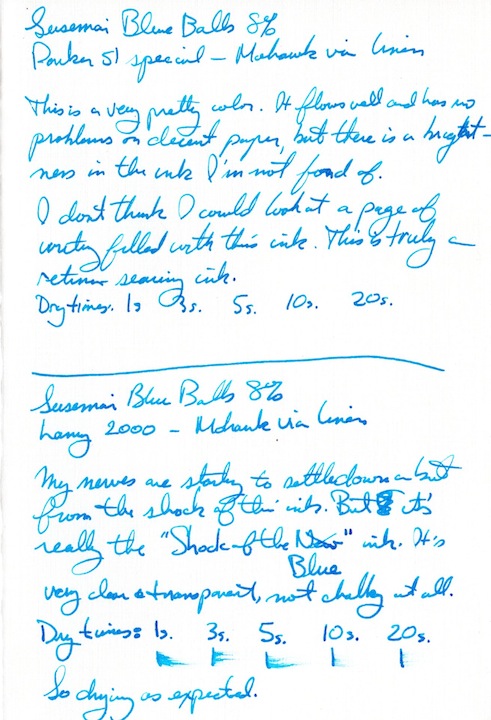 Susemai Blue Balls 8%
Parker 51 special – Mohawk via Linen
This is a very pretty color. It flows well and has no
problems on decent paper, but there is a bright-
ness in the ink I'm not fond of.
I don't think I could look at a page of
writing filled with this ink. This is truly a
retina searing ink.
Dry times. 1s 3s. 5s. 10s. 20s.
Susemai Blue Balls 8%
Lamy 2000 – Mohawk via Linen
My nerves are starting to settle down a bit
from the shock of this ink. But it's
really the "Shock of the New" ink. It's
Blue
very clear & transparent, not chalky at all.
Dry times: 1s. 3s. 5s. 10s. 20s.
So drying as expected.